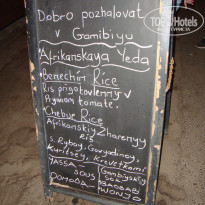 Dobro pozhalovat
v Gambiyu
Afrikanskaya Yeda
Benechin Rice
Ris prigotovlenny v
Pryanom tomate.
Chebur Rice
Afrikanskiy Zharenyy
Ris
S. Ryboy, Govyadinoy,
Kuritsey, Krevetkami
YASSA
SOUS
DOMODA
Gambiyskiy
Sok
BAOBAB
WONJO
TOPHOTELS